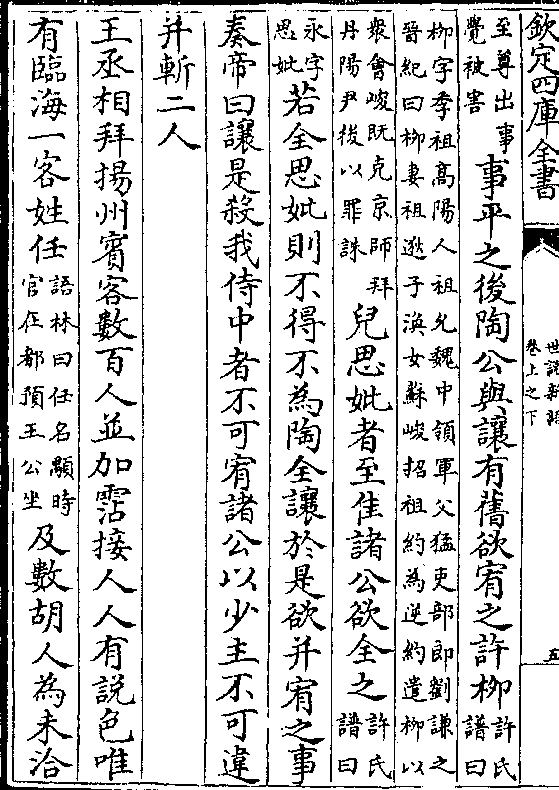 欽定四庫全書
世說新語
卷上之下
五
至尊出事
覺被害
事平之後陶公與讓有舊欲宥之許柳
許氏
譜曰
柳字季祖高陽人祖允魏中領軍父猛吏部郎劉謙之
晉紀曰柳妻祖逖子渙女蘇峻招祖約為逆約遣柳以
衆會峻既克京師拜
丹陽尹後以罪誅
兒思妣者至佳諸公欲全之
許氏
譜曰
永字
思妣
若全思妣則不得不為陶全讓於是欲并宥之事
奏帝曰讓是殺我侍中者不可宥諸公以少主不可違
并斬二人
王丞相拜揚州賓客數百人並加霑接人人有説色唯
有臨海一客姓任
語林曰任名顒時
官在都預王公坐
及數胡人為未洽